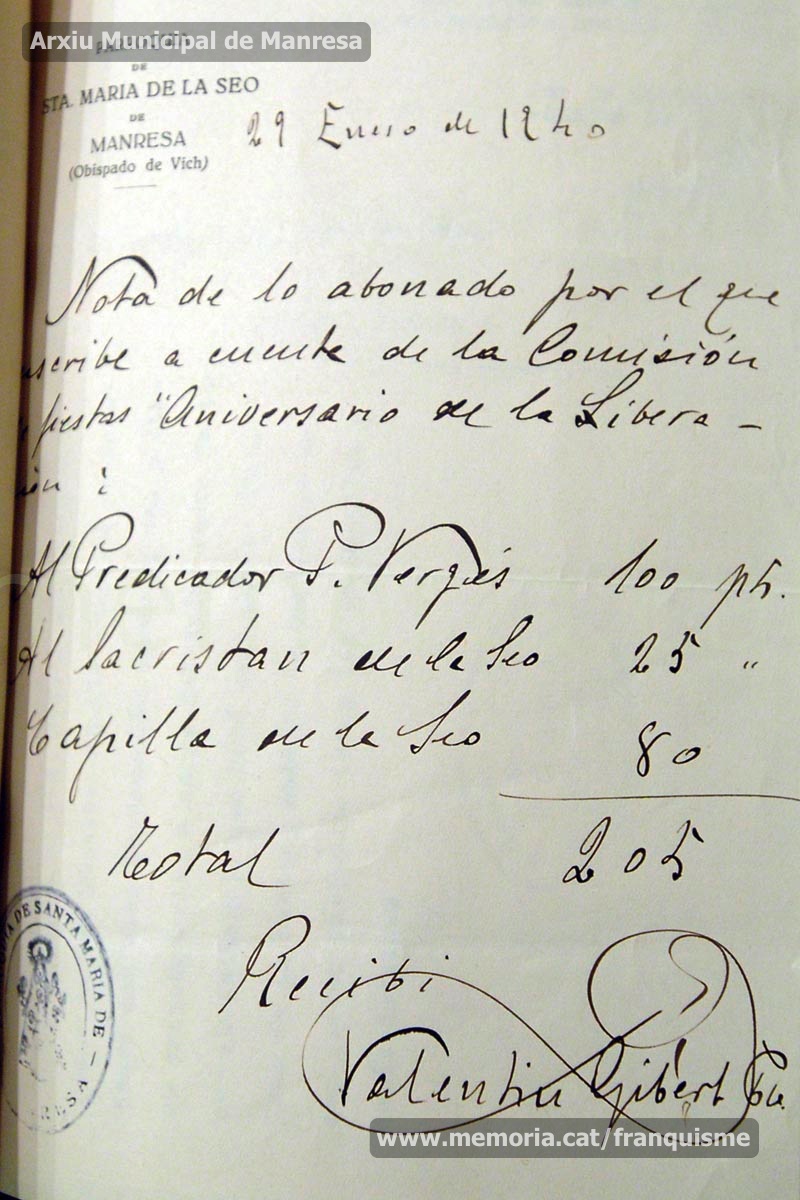 Arxiu Municipal de Manresa
DE
STA. MARIA DE LA SEO
DE
MANRESA
(Obispado de Vich)
29 Enero de 1940
Nota de lo abonado por el que
uscribe a cuenta de la Comisión
fiestas "Aniversario de la Libera-
ión :
Al Predicador P. Vergés 100 pts.
Al Sacristan de la Seo 25 "
Capilla de la Seo 80
Total 205
Recibí
Valentin Gibert Pbro
DE SANTA MARIA DE -
www.memoria.cat/franquisme